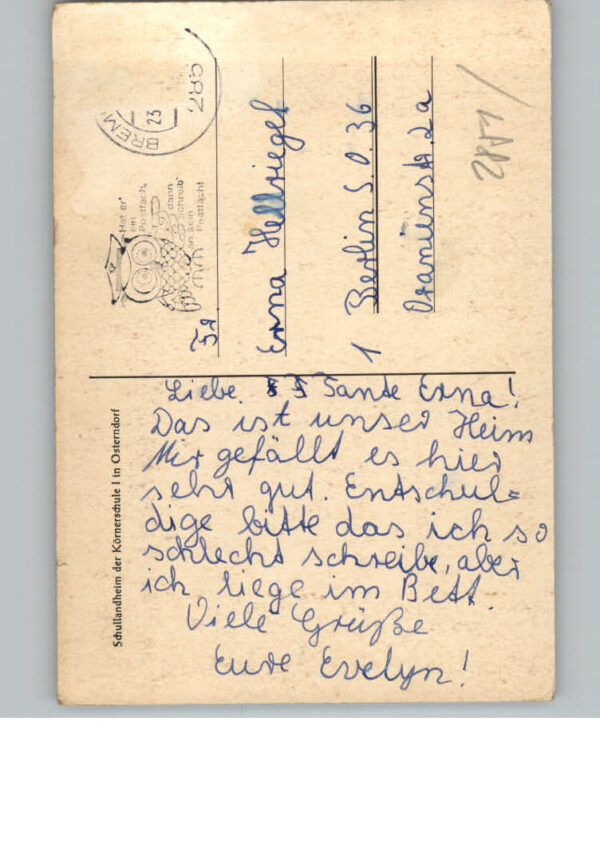 BREM
23
285
Hat er
ein
Postfach,
dann
schreib
an sein
Postfach!
Fr.
Erna Hellriegel
1 Berlin S.O.36
Oranienstr.2a
Schullandheim der Körnerschule I in Osterndorf
Liebe Tante Erna!
Das ist unser Heim
Mir gefällt es hier
sehr gut. Entschul=
dige bitte das ich so
schlecht schreibe, aber
ich liege im Bett.
Viele Grüße
Eure Evelyn!